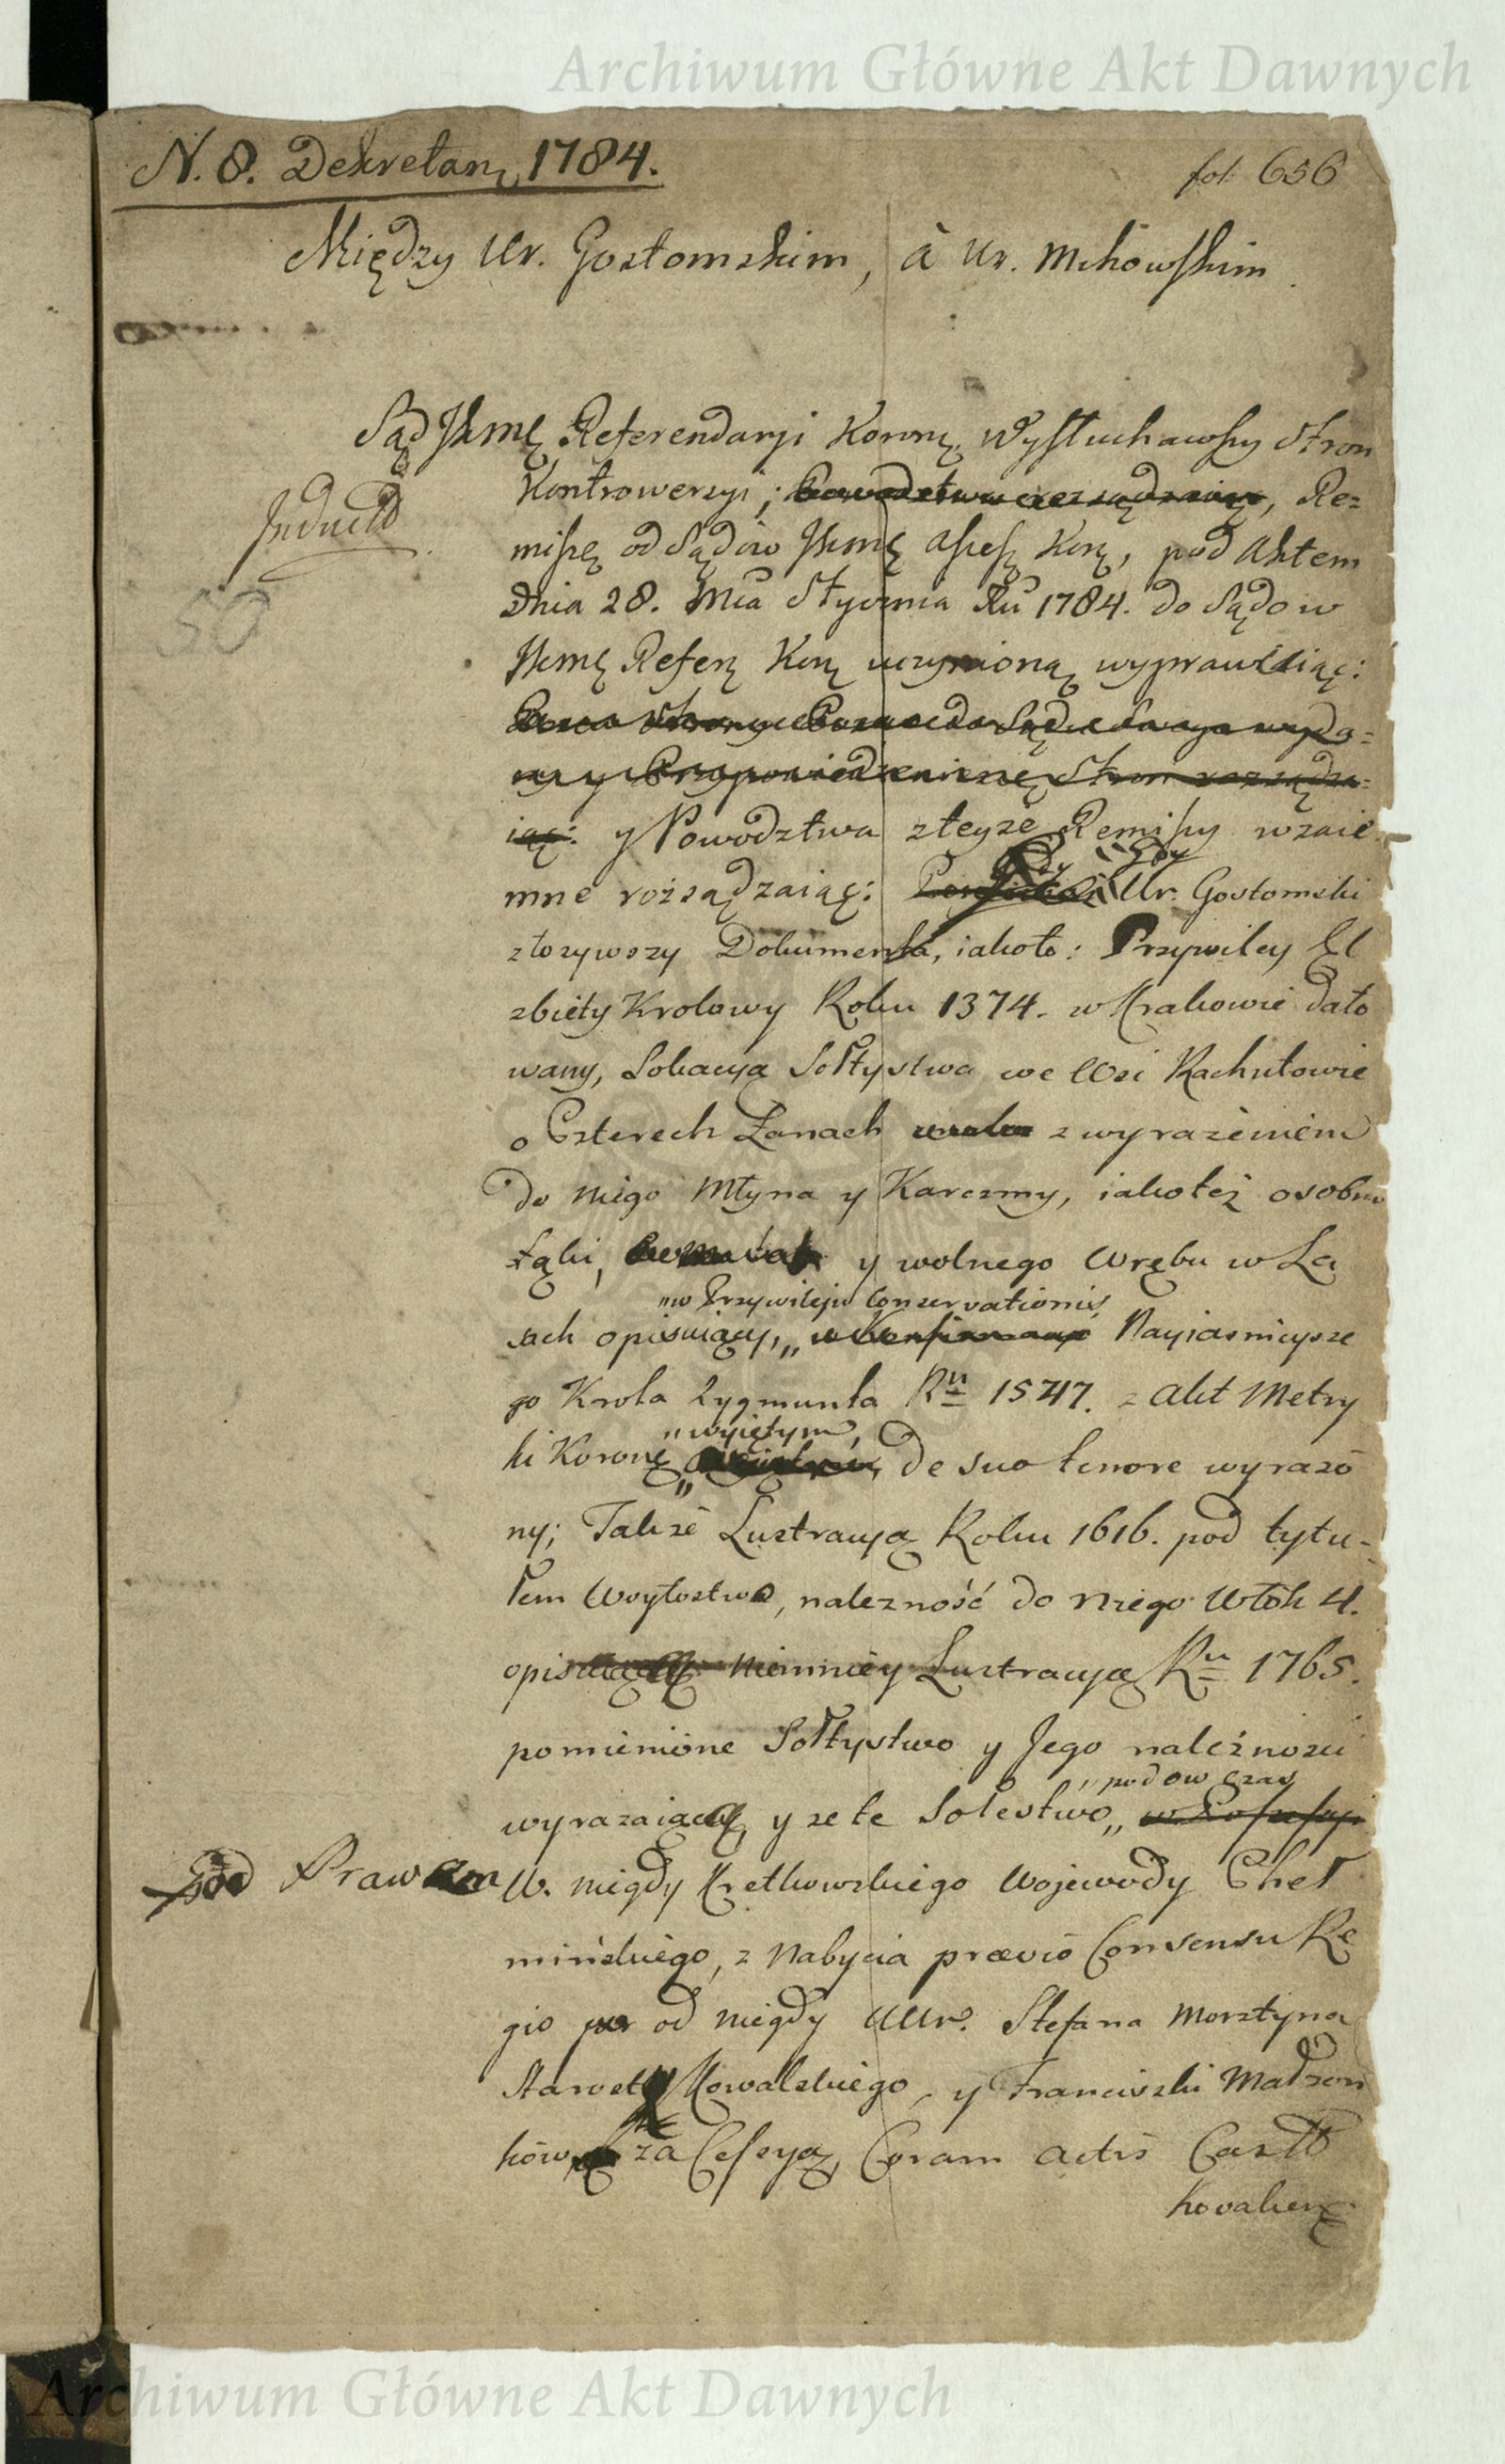 Archiwum Główne Akt Dawnych
N. 8. Dekretarz 1784.
fol. 656
Między Ur. Gostomskim, à Ur. Mikowskim
Sąd JKmę Referendarji Koronę Wysłuchawszy Stron
Jnductt
Kontrowersyi; Powodztwa rozsądzaiąc, Re=
missę od Sądów JKmę assessę Korę, pod Aktem
50
Dnia 28. Mca Stycznia Ru 1784. do Sądow
JKmę Referę Korę uczynioną wyprawuiąc:
iąc: y Powodztwa z teyże Remissy wzaie
Gdy
mne rozsądzaiąc: Ur. Gostomski
złozywszy Dokumenta, iakoto: Przywiley El
zbiety Krolowy Roku 1374. w Krakowie dato
wany, Lokacyą Sołtystwa we Wsi Rachutowie
o Czterech Łanach z wyrazeniem
do niego Młyna y Karczmy, iakoteż osobno
Łąki, y wolnego Wrębu w La
"w Przywileju Conservationis
sach opisuiący, " w Konfirmacyi Nayiasnieysze
go Krola Zygmunta Ru 1547. z Akt Metry
"wyiętym,
ki Koronę " de suo tenore wyrażo
ny; Takze Lustracyą Roku 1616. pod tytu=
łem Woytostwo, nalezność do niego Włok 4.
opisuiącą niemniey Lustracyą Ru 1765.
pomienione Sołtystwo y Jego należnosci
" pod ow czas
wyrazaiącą, y ze te Sołestwo " w Possessyi
Prawem W. niegdy Kretkowskiego Wojewody Cheł
mińskiego, z Nabycia prævio Consensu Re
gio od niegdy UUr. Stefana Morsztyna
Starosty Kowalskiego, y Franciszki Małzon
ków za Cessyą, Coram actis Castt
Kovalienę
Archiwum Główne Akt Dawnych